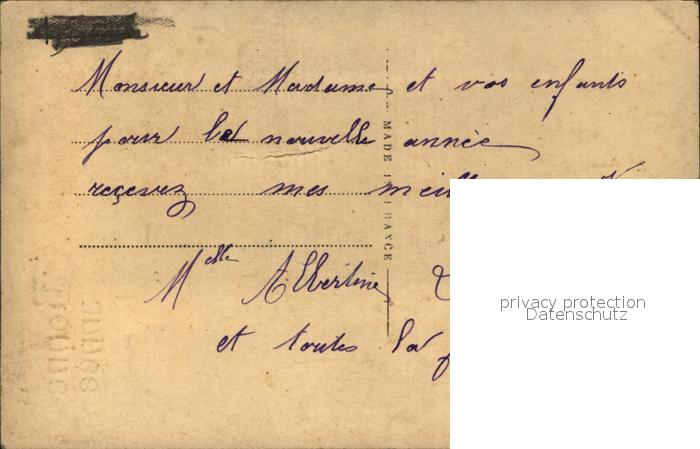 Monsieur et Madame et vos enfants
pour la nouvelle année
reçevez mes
MADE IN FRANCE
Melle Albertine
et toutes la
privacy protection
Datenschutz